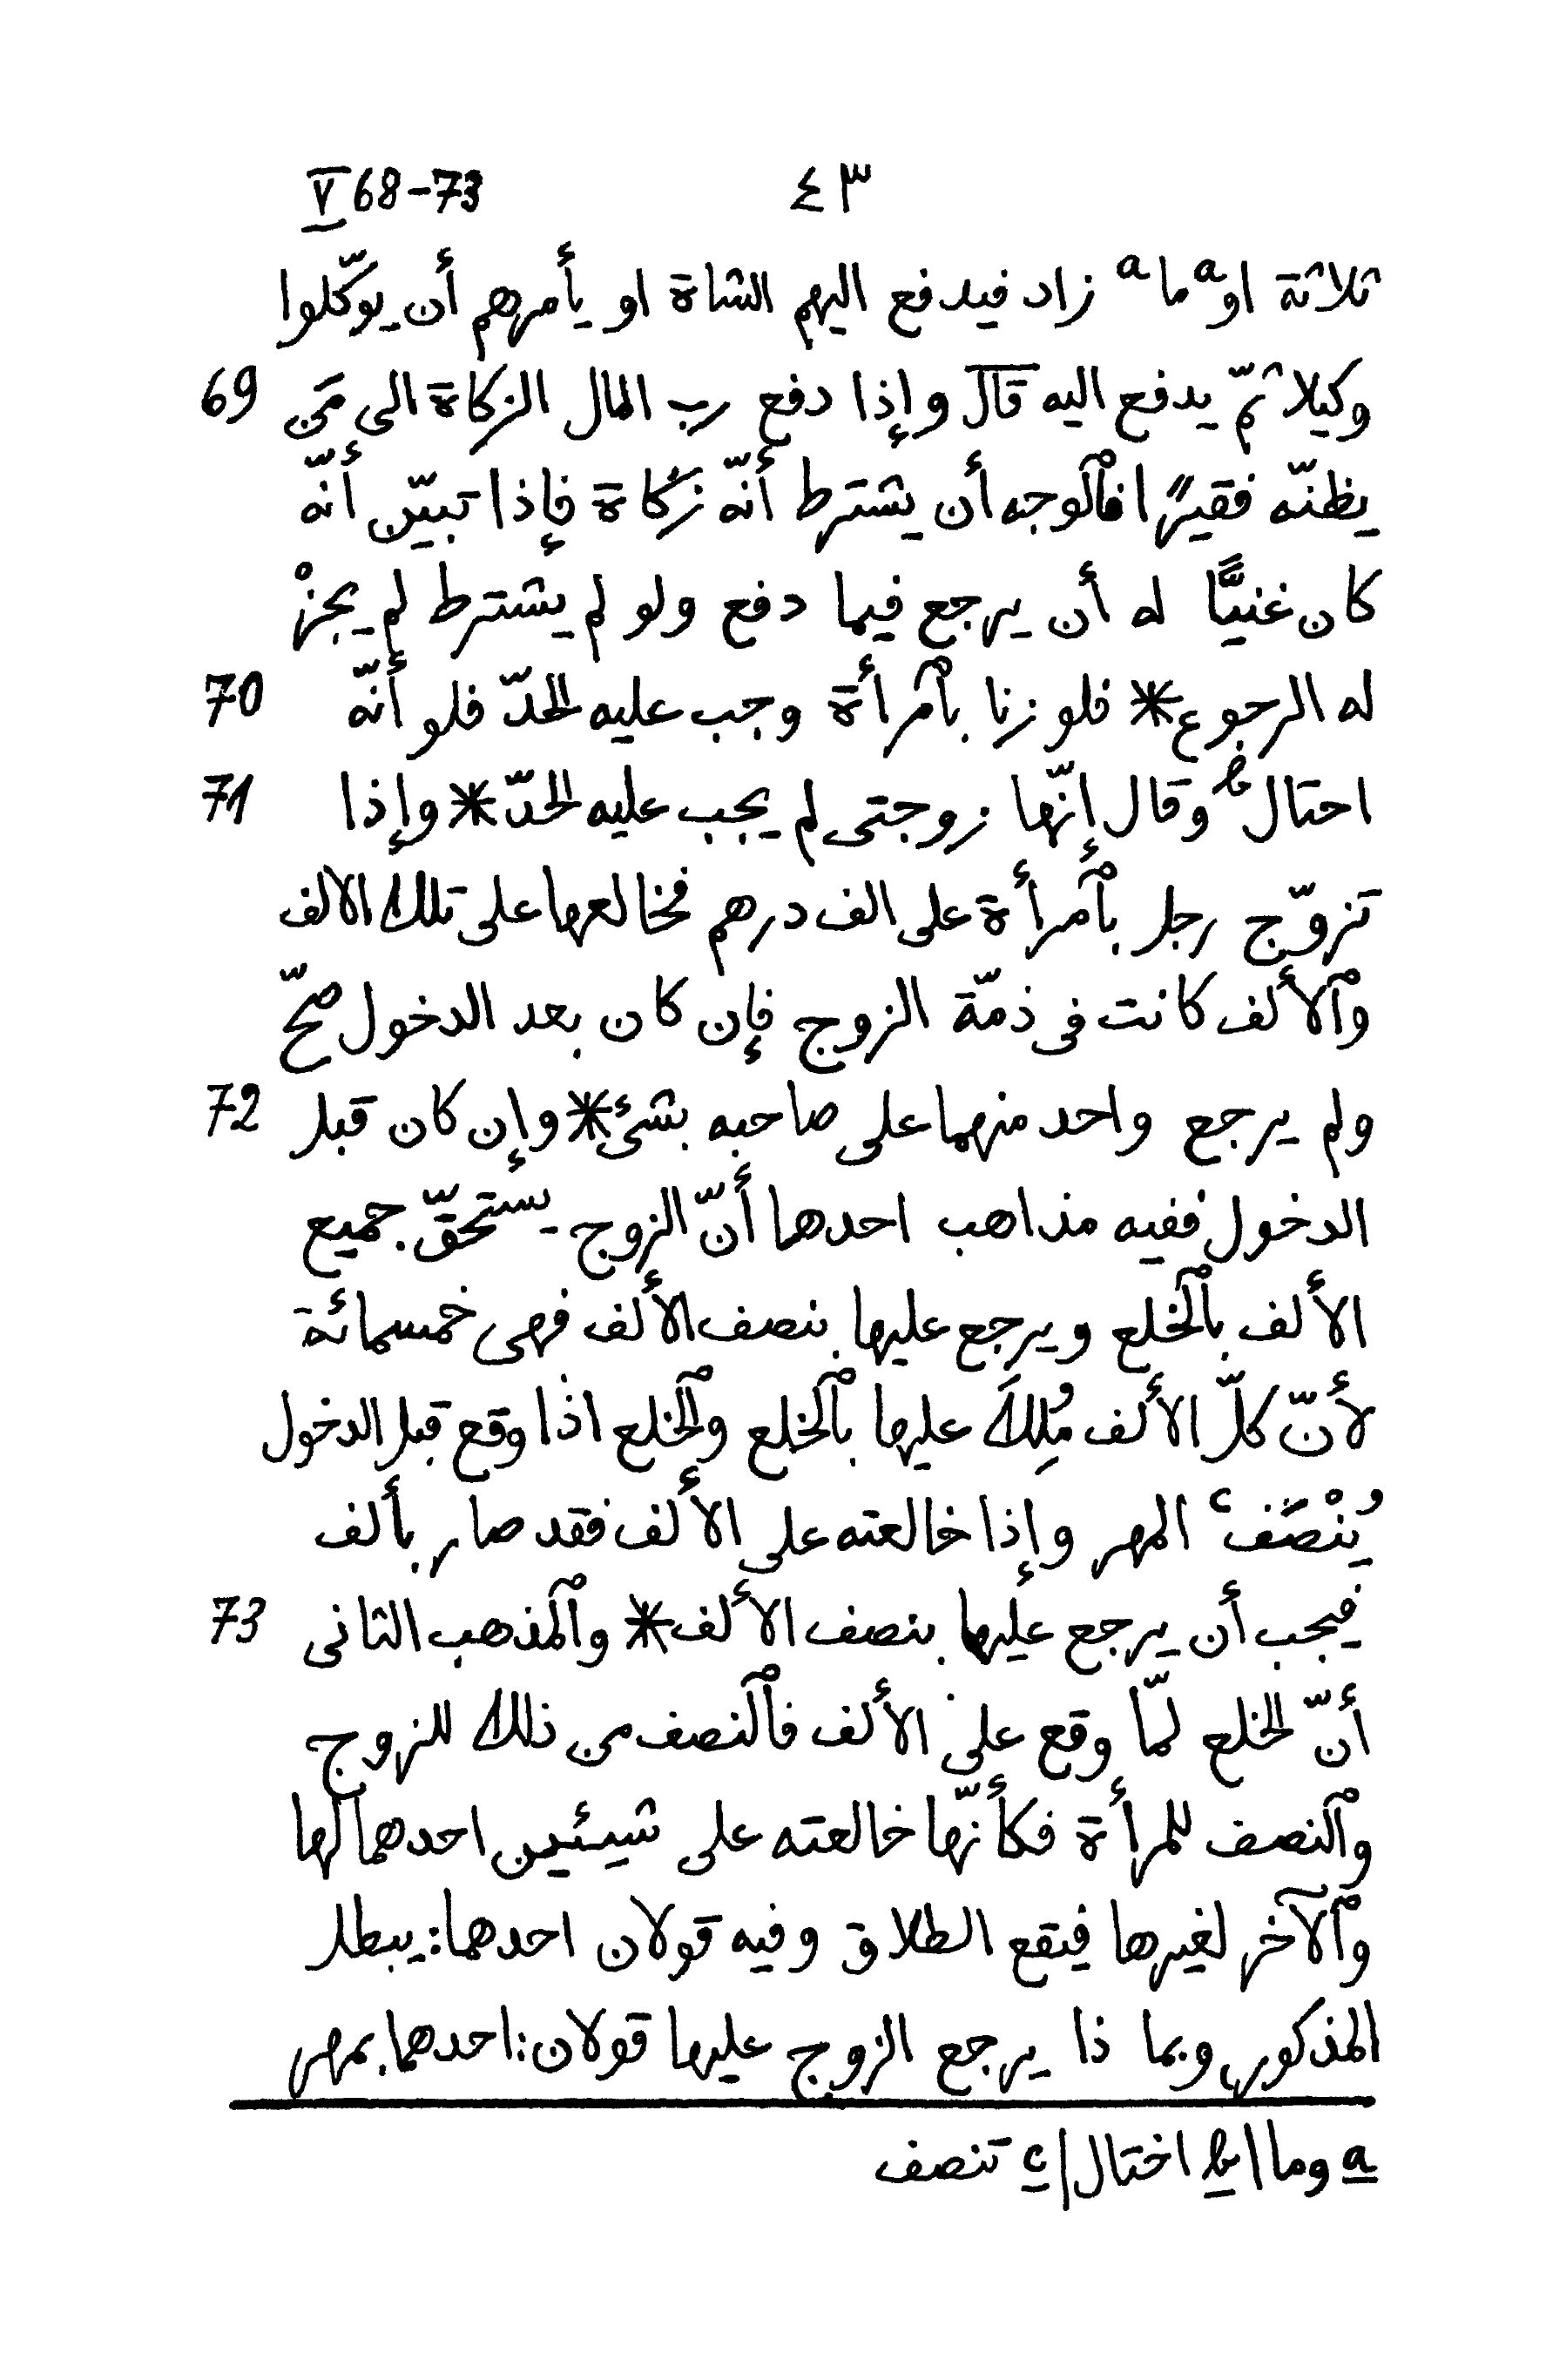 ٤٣ V 68-73
ثلاثة او a ما a زاد فيدفع اليهم الشاة او يأمرهم أن يوكّلوا
وكيلا ثمّ يدفع اليه قال وإذا دفع رب المال الزكاة الى مَن 69
يظنّه فقيرًا فٱلوجه أن يشترط أنّه زكاة فإذا تبيّن أنّه
كان غنيًّا له أن يرجع فيما دفع ولو لم يشترط لم يجزْ
له الرجوع * فلو زنا بٱمرأة وجب عليه الحدّ فلو أنّه 70
احتال b وقال إنّها زوجتى لم يجب عليه الحدّ * وإذا 71
تزوّج رجل بٱمرأة على الف درهم فخالعها على تلك الالف
وٱلألف كانت فى ذمّة الزوج فإن كان بعد الدخول صحّ
ولم يرجع واحد منهما على صاحبه بشئ * وإن كان قبل 72
الدخول ففيه مذاهب احدهما أنّ الزوج يستحقّ جميع
الألف بٱلخلع ويرجع عليها بنصف الألف فهى خمسمائة
لأنّ كلّ الألف مُلِكَ عليها بٱلخلع وٱلخلع اذا وقع قبل الدخول
يُنْصَف c المهر وإذا خالعته على الألف فقد صار بألف
فيجب أن يرجع عليها بنصف الألف * وٱلمذهب الثانى 73
أنّ الخلع لمّا وقع على الألف فٱلنصف من ذلك للزوج
وٱلنصف للمرأة فكأنّها خالعته على شيئين احدهما لها
وٱلآخر لغيرها فيقع الطلاق وفيه قولان احدهما: يبطل
المذكور وبما ذا يرجع الزوج عليها قولان: احدهما بمهر
a وما | b اختال | c تنصف